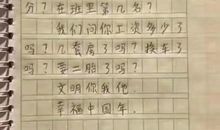 分？在班里第几名？
我们问你工资多少了
吗？几套房了吗？换车了
吗？要二胎了吗？
文明你我他，
幸福中国年。